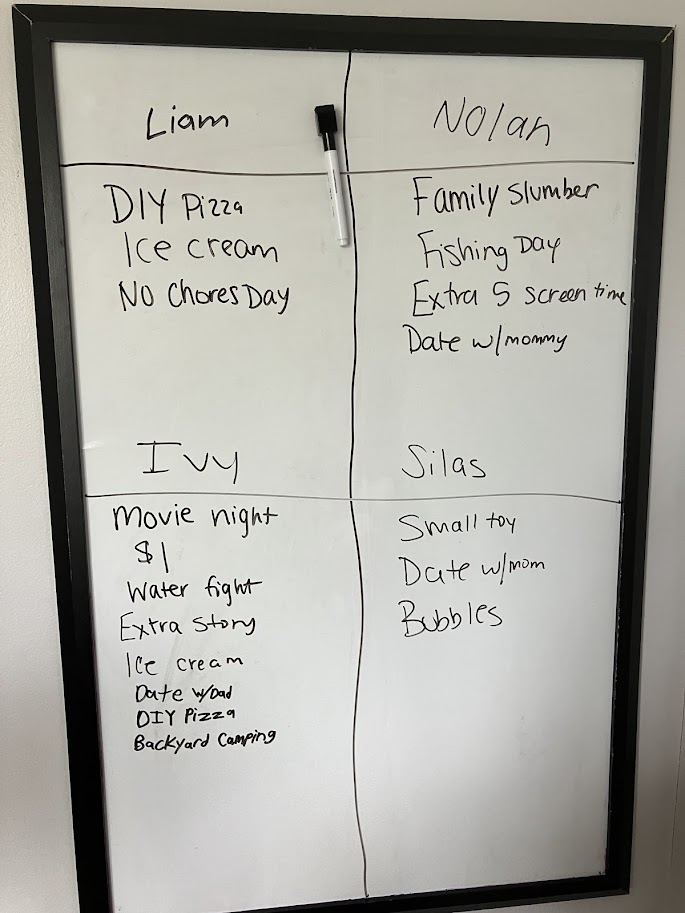 Liam
DIY Pizza
Ice cream
No Chores Day
Nolan
Family Slumber
Fishing Day
Extra 5 screen time
Date w/mommy
Ivy
Movie night
$1
Water fight
Extra Story
Ice cream
Date w/Dad
DIY Pizza
Backyard Camping
Silas
Small toy
Date w/mom
Bubbles